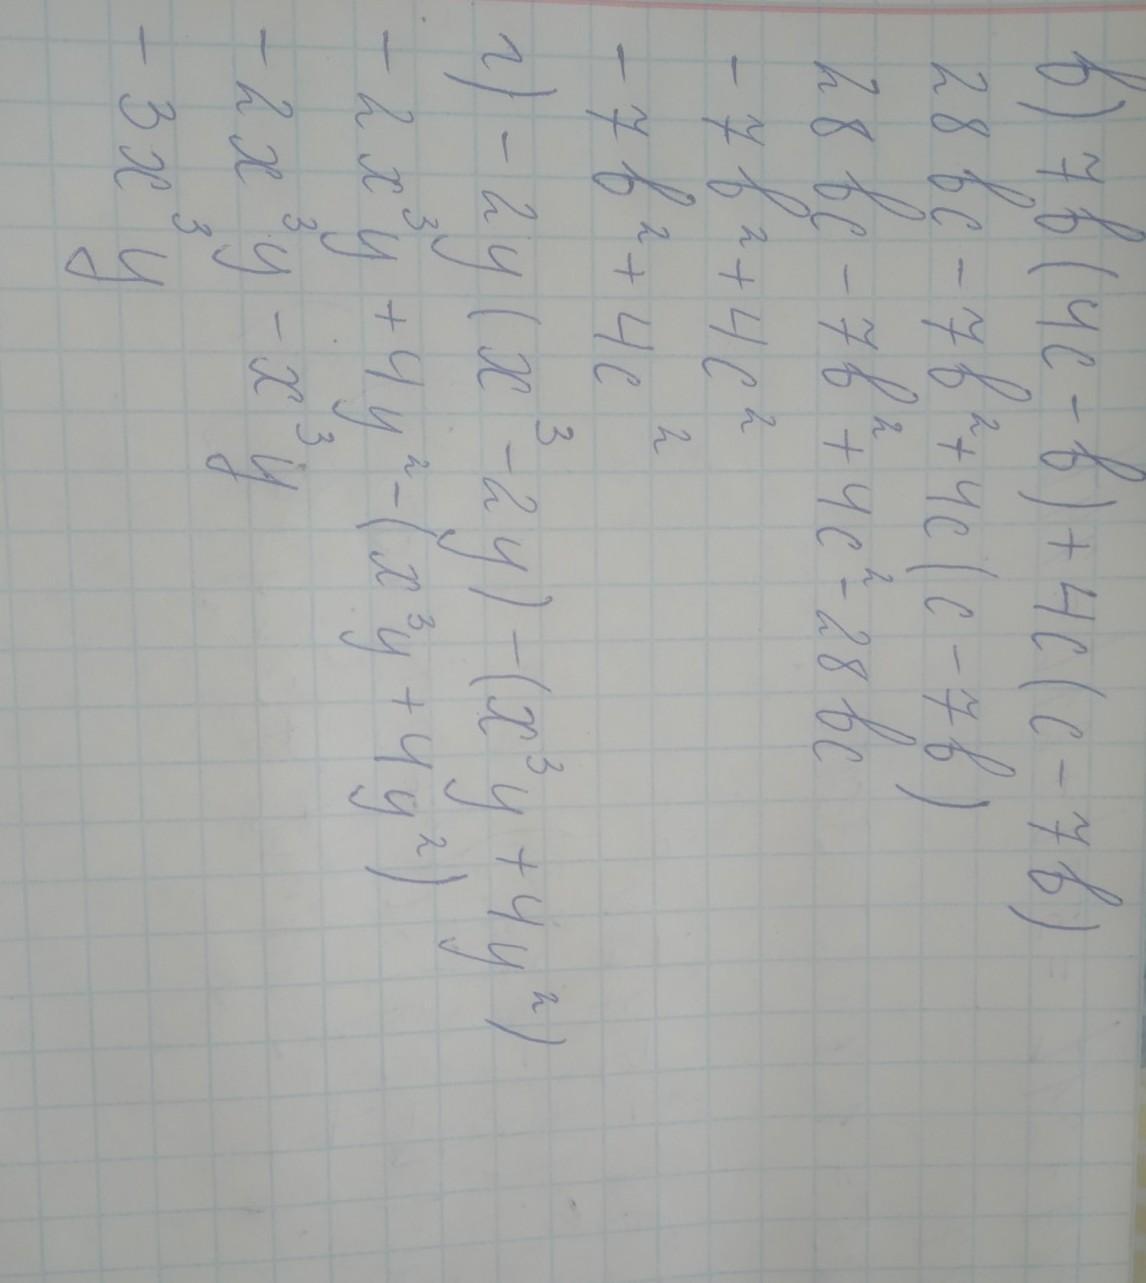 в) 7b(4c-b)+4c(c-7b)
28bc-7b²+4c(c-7b)
28bc-7b²+4c²-28bc
-7b²+4c²
-7b²+4c²
г) -2y(x³-2y)-(x³y+4y²)
-2x³y+4y²-(x³y+4y²)
-2x³y-x³y
-3x³y